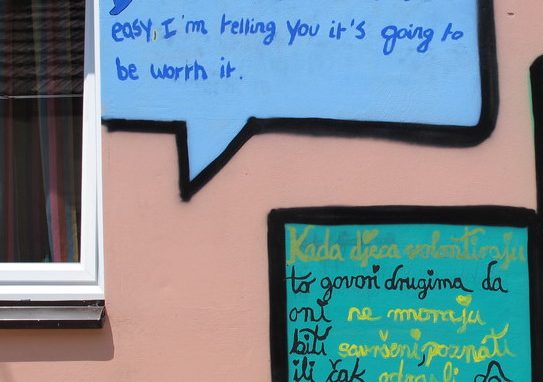 easy, I'm telling you it's going to
be worth it.
Kada djeca volontiraju
to govori drugima da
oni ne moraju
biti savršeni, poznati
ili čak odrasli da